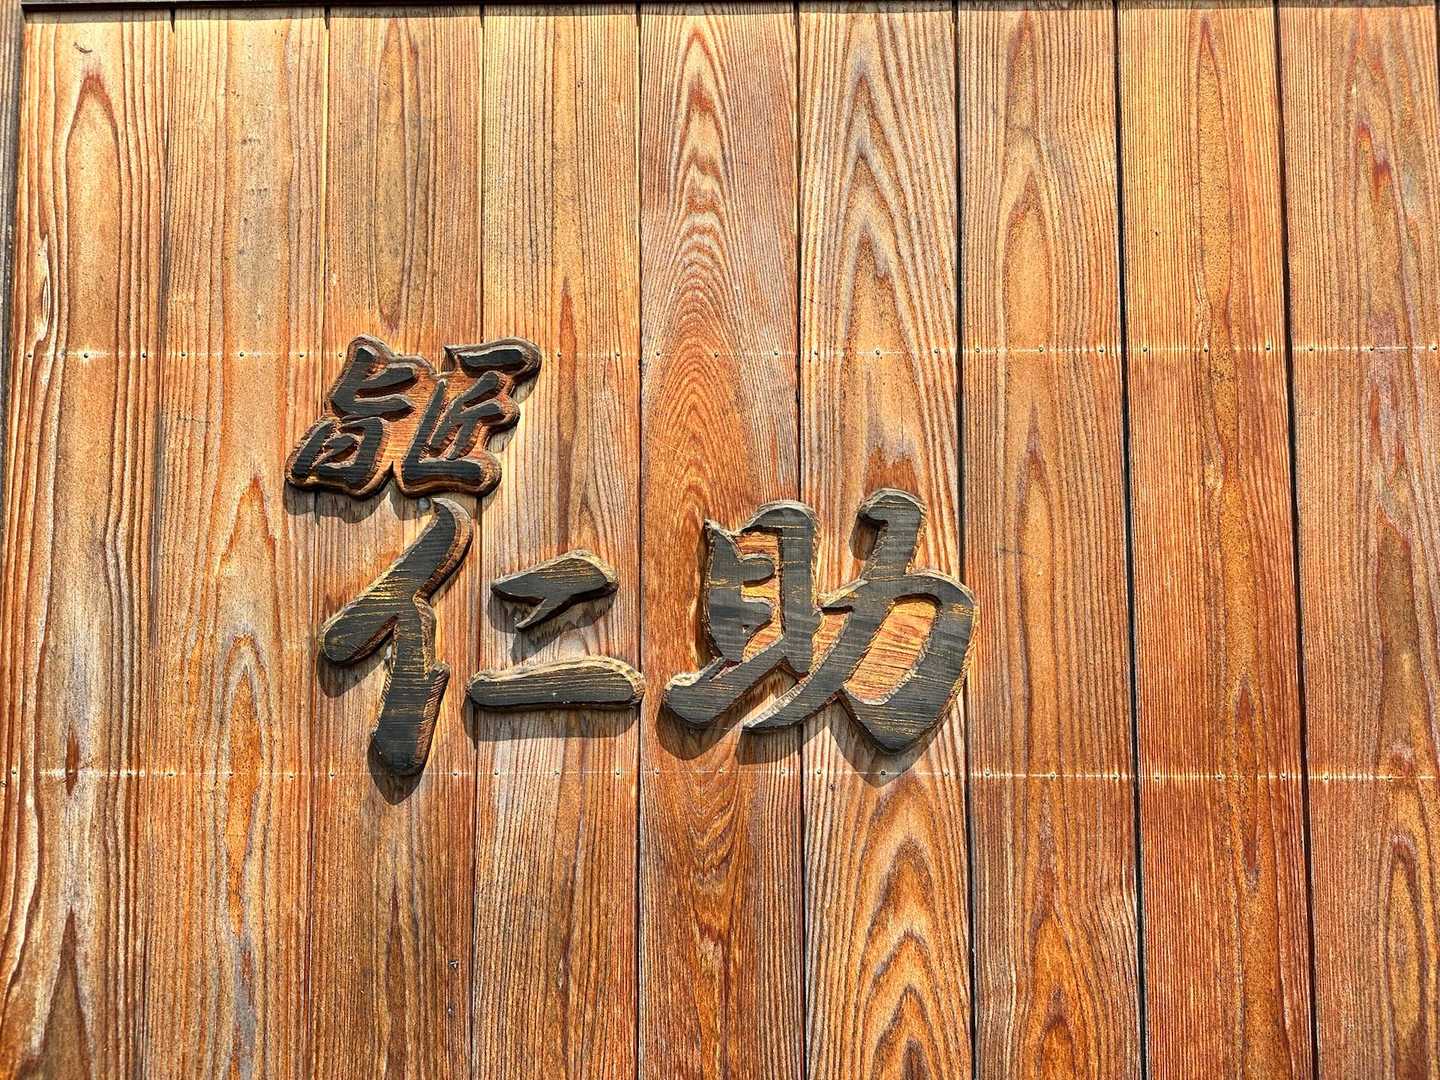 旨匠
仁助